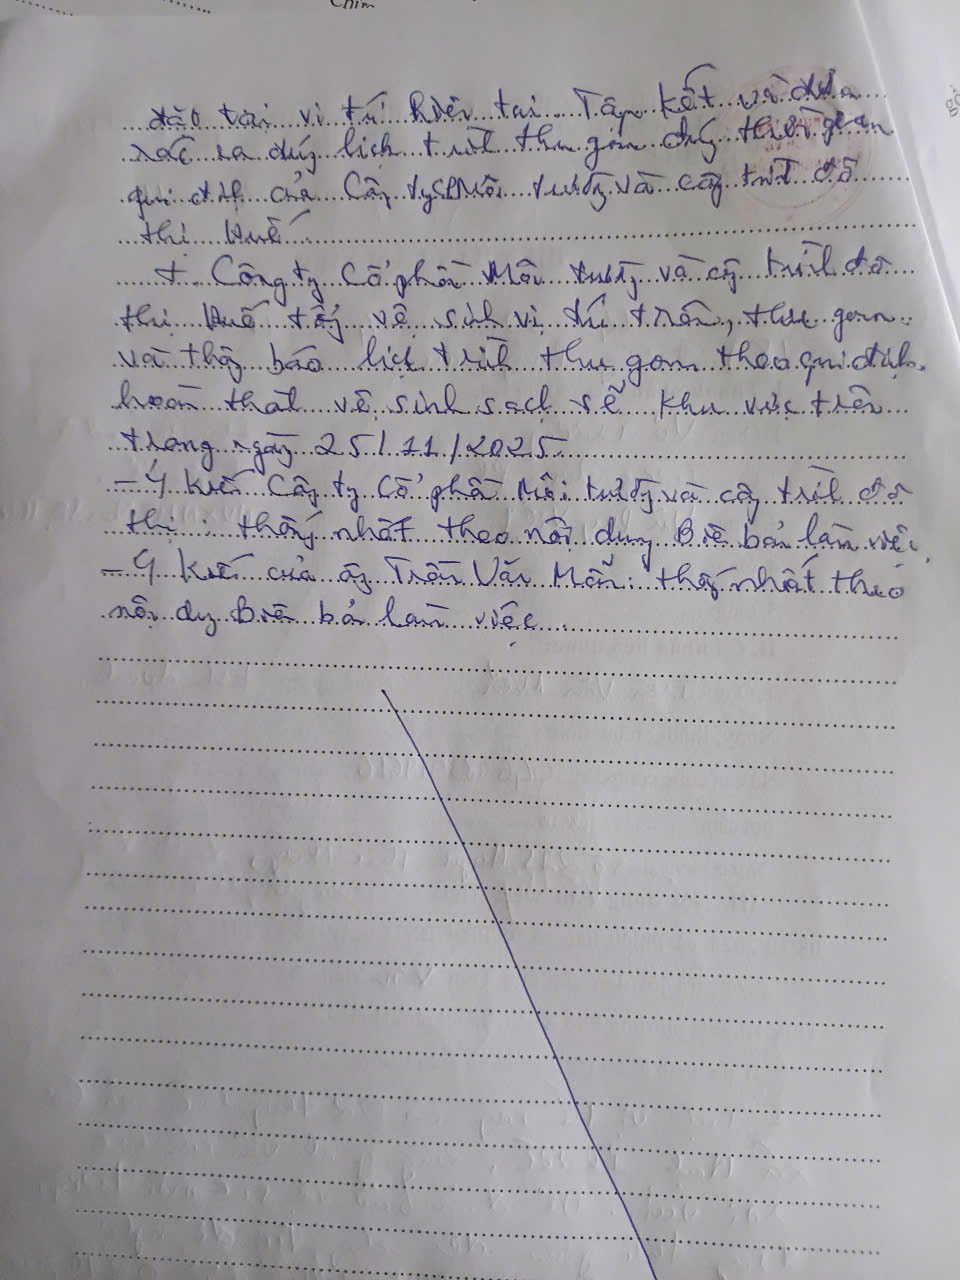 Chim
đặt tại vị trí hiện tại. Tập kết và đưa
rác ra đúng lịch trình thu gom đúng thời gian
qui định của Công ty CP Môi trường và công trình đô
thị Huế.
+ Công ty Cổ phần Môi trường và công trình đô
thị Huế tổng vệ sinh vị trí trên, thu gom
và thông báo lịch trình thu gom theo qui định.
hoàn thành vệ sinh sạch sẽ khu vực trên
trong ngày 25/11/2025
- Ý kiến Công ty Cổ phần Môi trường và công trình đô
thị: thống nhất theo nội dung Biên bản làm việc.
- Ý kiến của ông Trần Văn Mẫn: thống nhất theo
nội dung Biên bản làm việc.